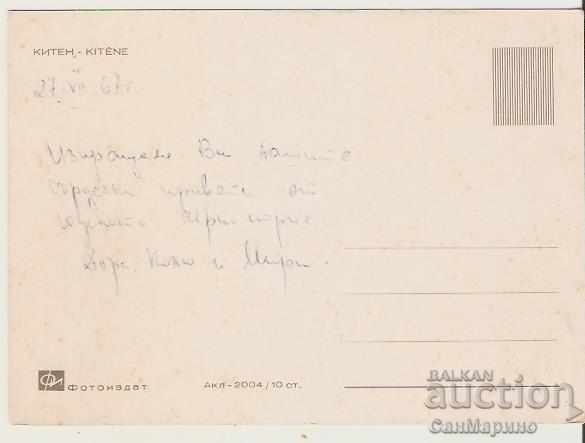 КИТЕН - KITÈNE
27. VII 67г.
Изпращаме Ви нашите
сърдечни привети от
Черно море
и Мира.
Фотоиздат
АКЛ-2004/10 СТ.
BALKAN
auction
СанМарино